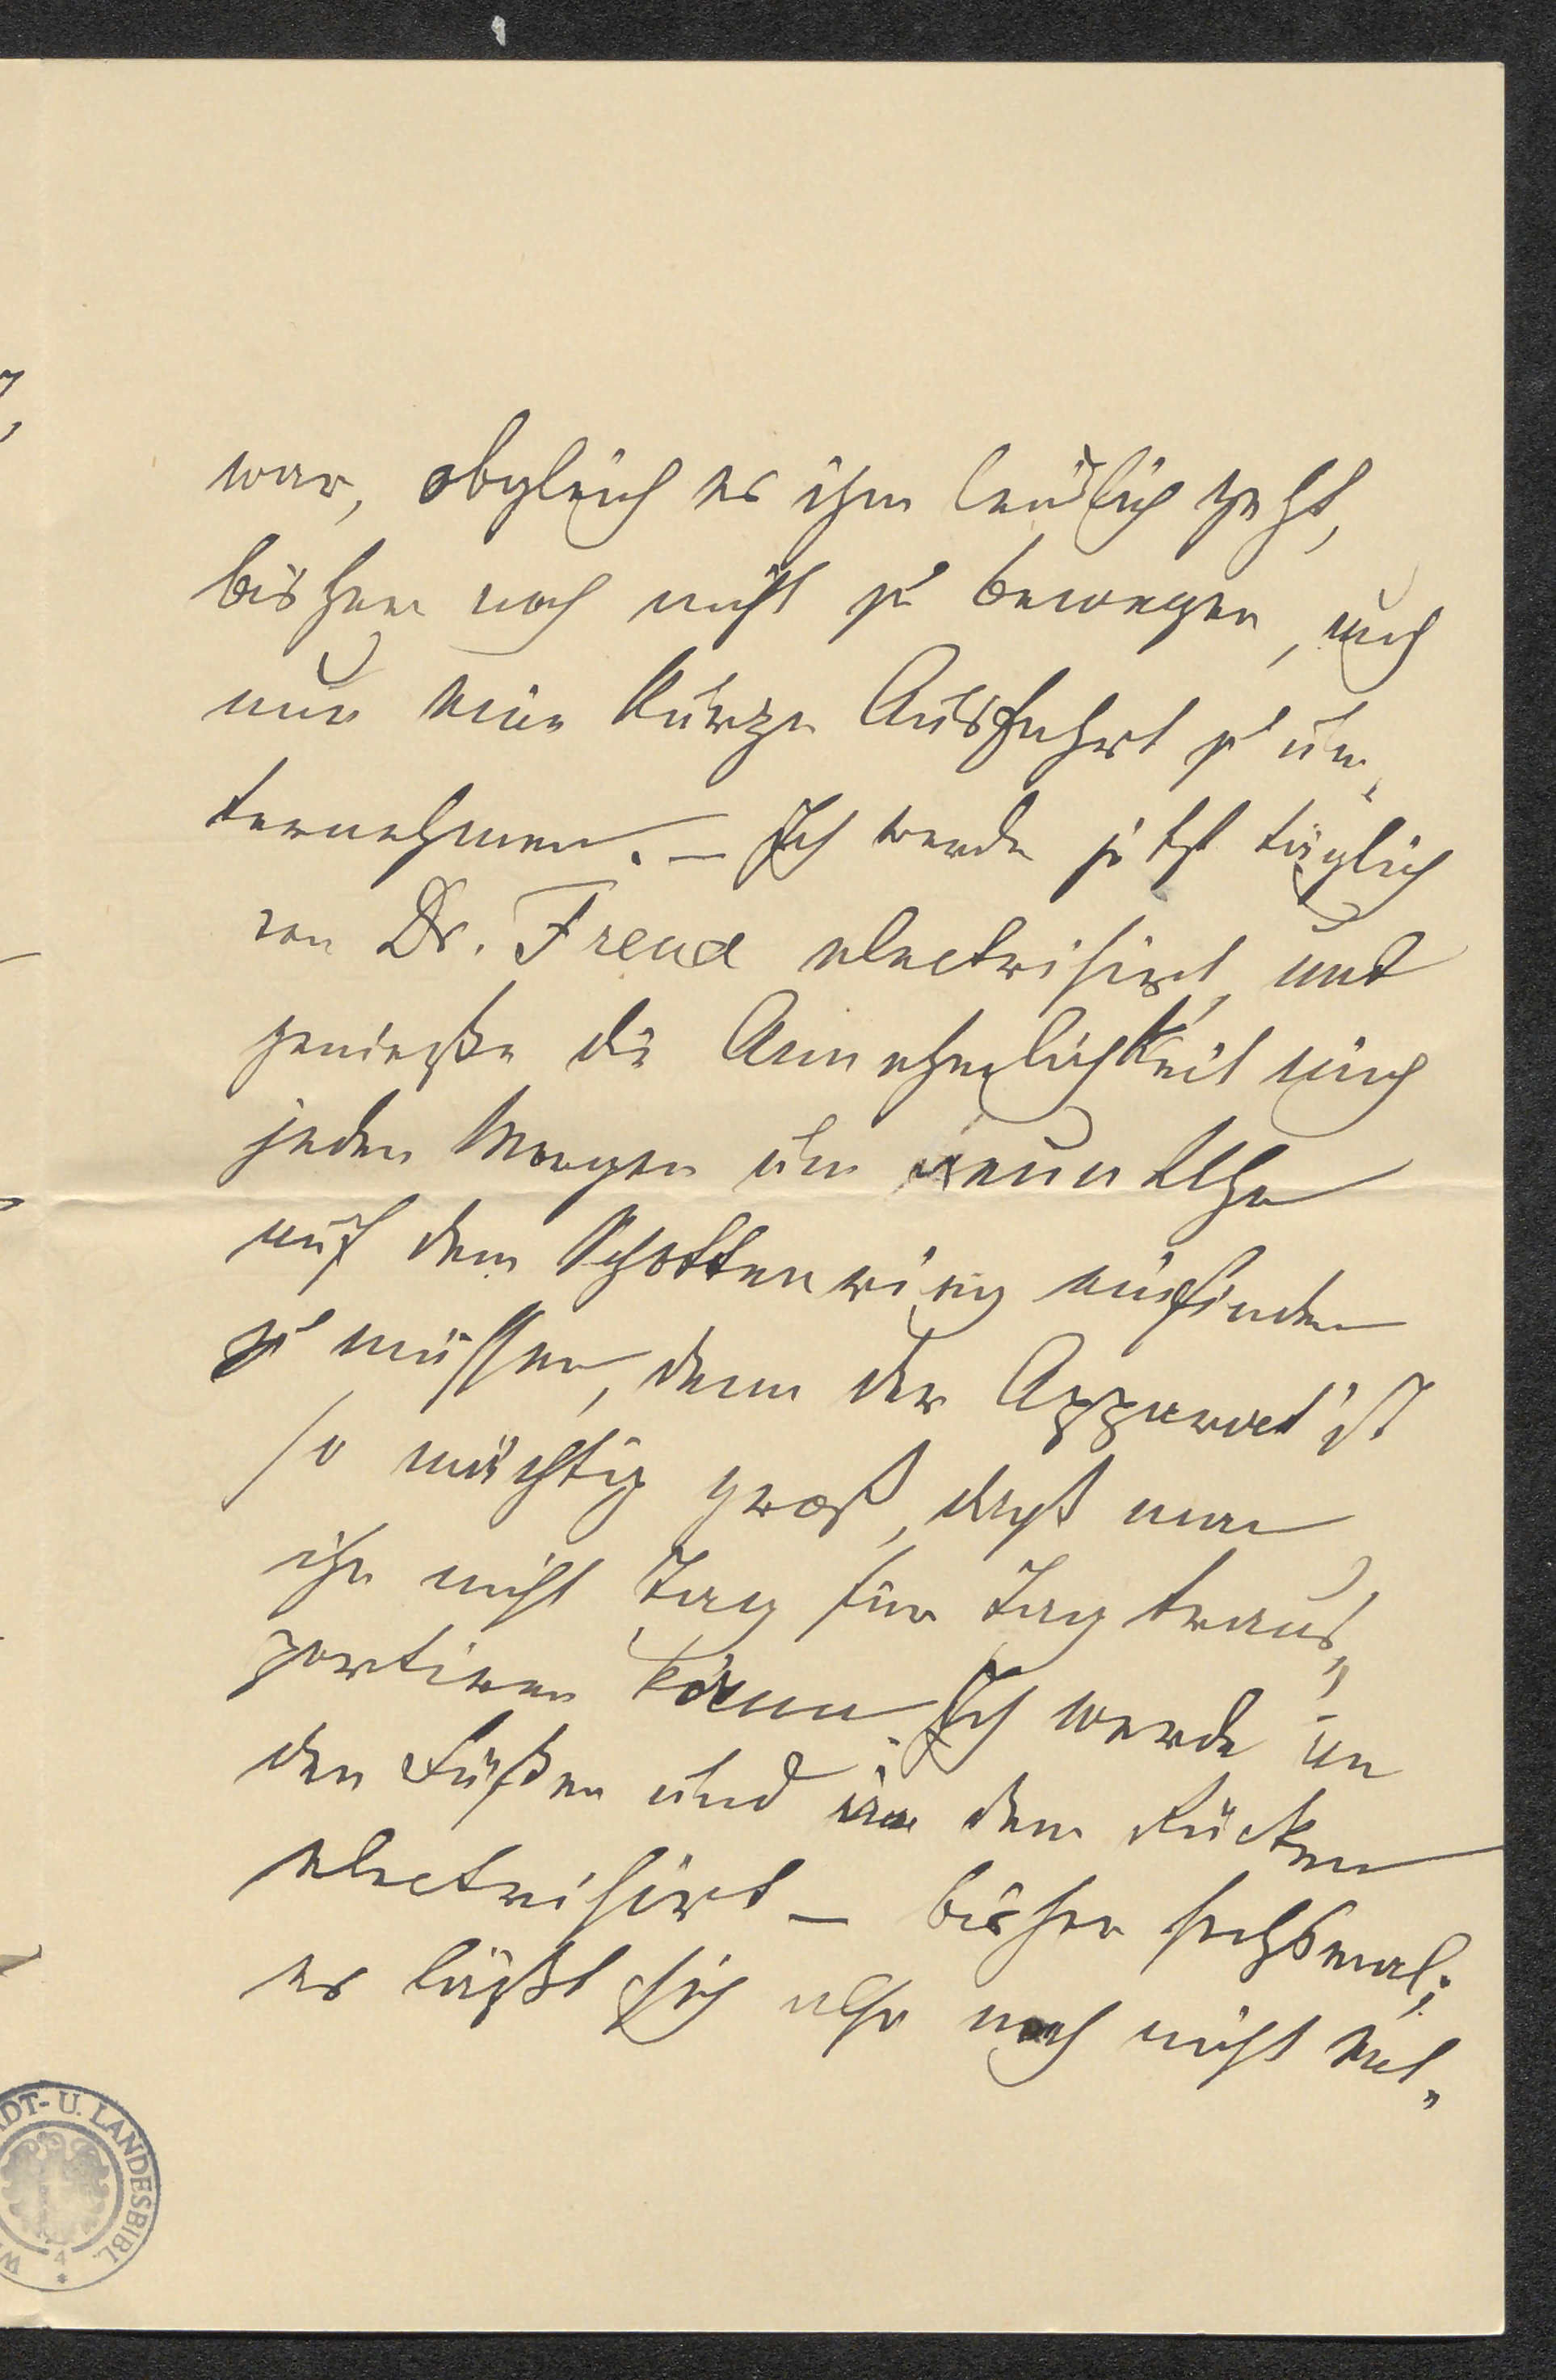 war, obgleich es ihm leidlich geht,
bisher noch nicht zu bewegen, auch
nur eine kurze Ausfahrt zu un-
ternehmen. – Ich werde jetzt täglich
von Dr. Freud electrisirt, und
genieße die Annehmlichkeit mich
jeden Morgen um neun Uhr
auf dem Schottenring einfinden
zu müssen, denn der Apparat ist
so mächtig groß, daß man
ihn nicht Tag für Tag trans-
portiren kann. Ich werde an
den Füßen und an dem Rücken
electrisirt – bisher sechsmal;
es läßt sich also noch nicht viel
DT- U. LANDESBIBL.
4